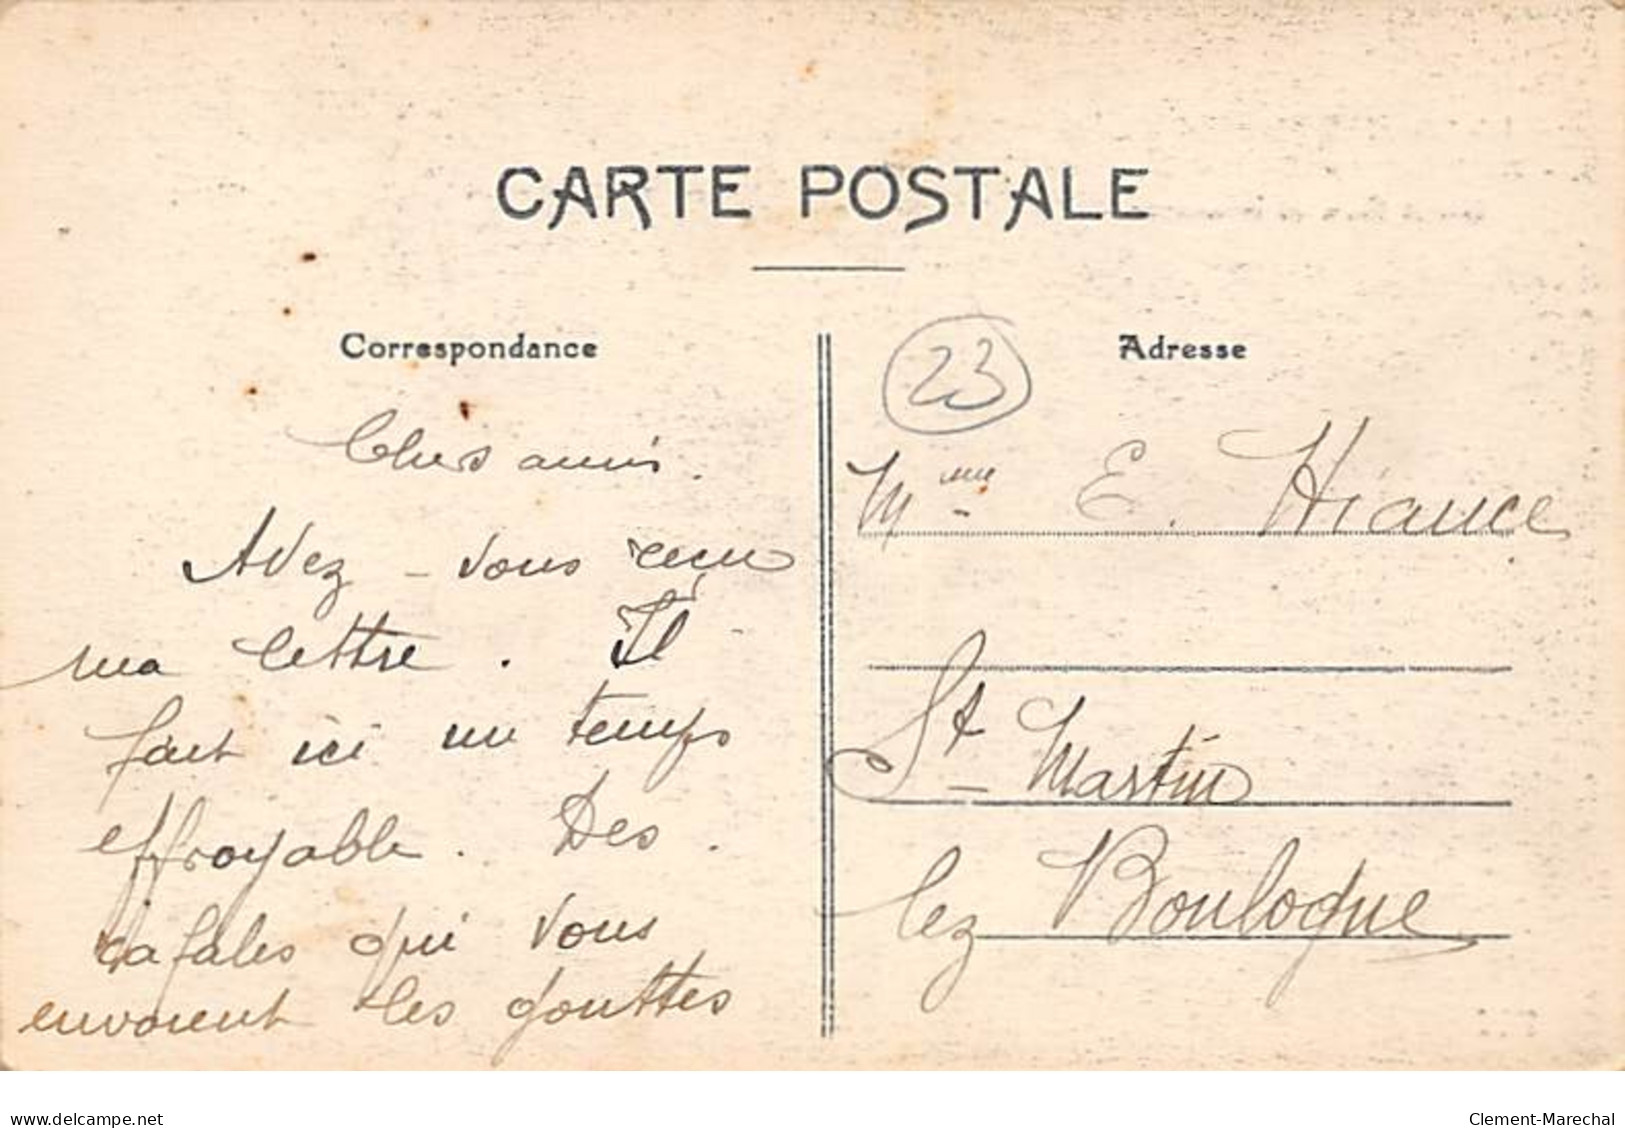 CARTE POSTALE
Correspondance
Chers amis.
Avez-vous reçu
ma lettre. Il
fait ici un temps
effroyable. Des
rafales qui vous
envoient les gouttes
23
Adresse
Mme E. Hiance
St Martin
lez Boulogne
www.delcampe.net
Clement-Marechal